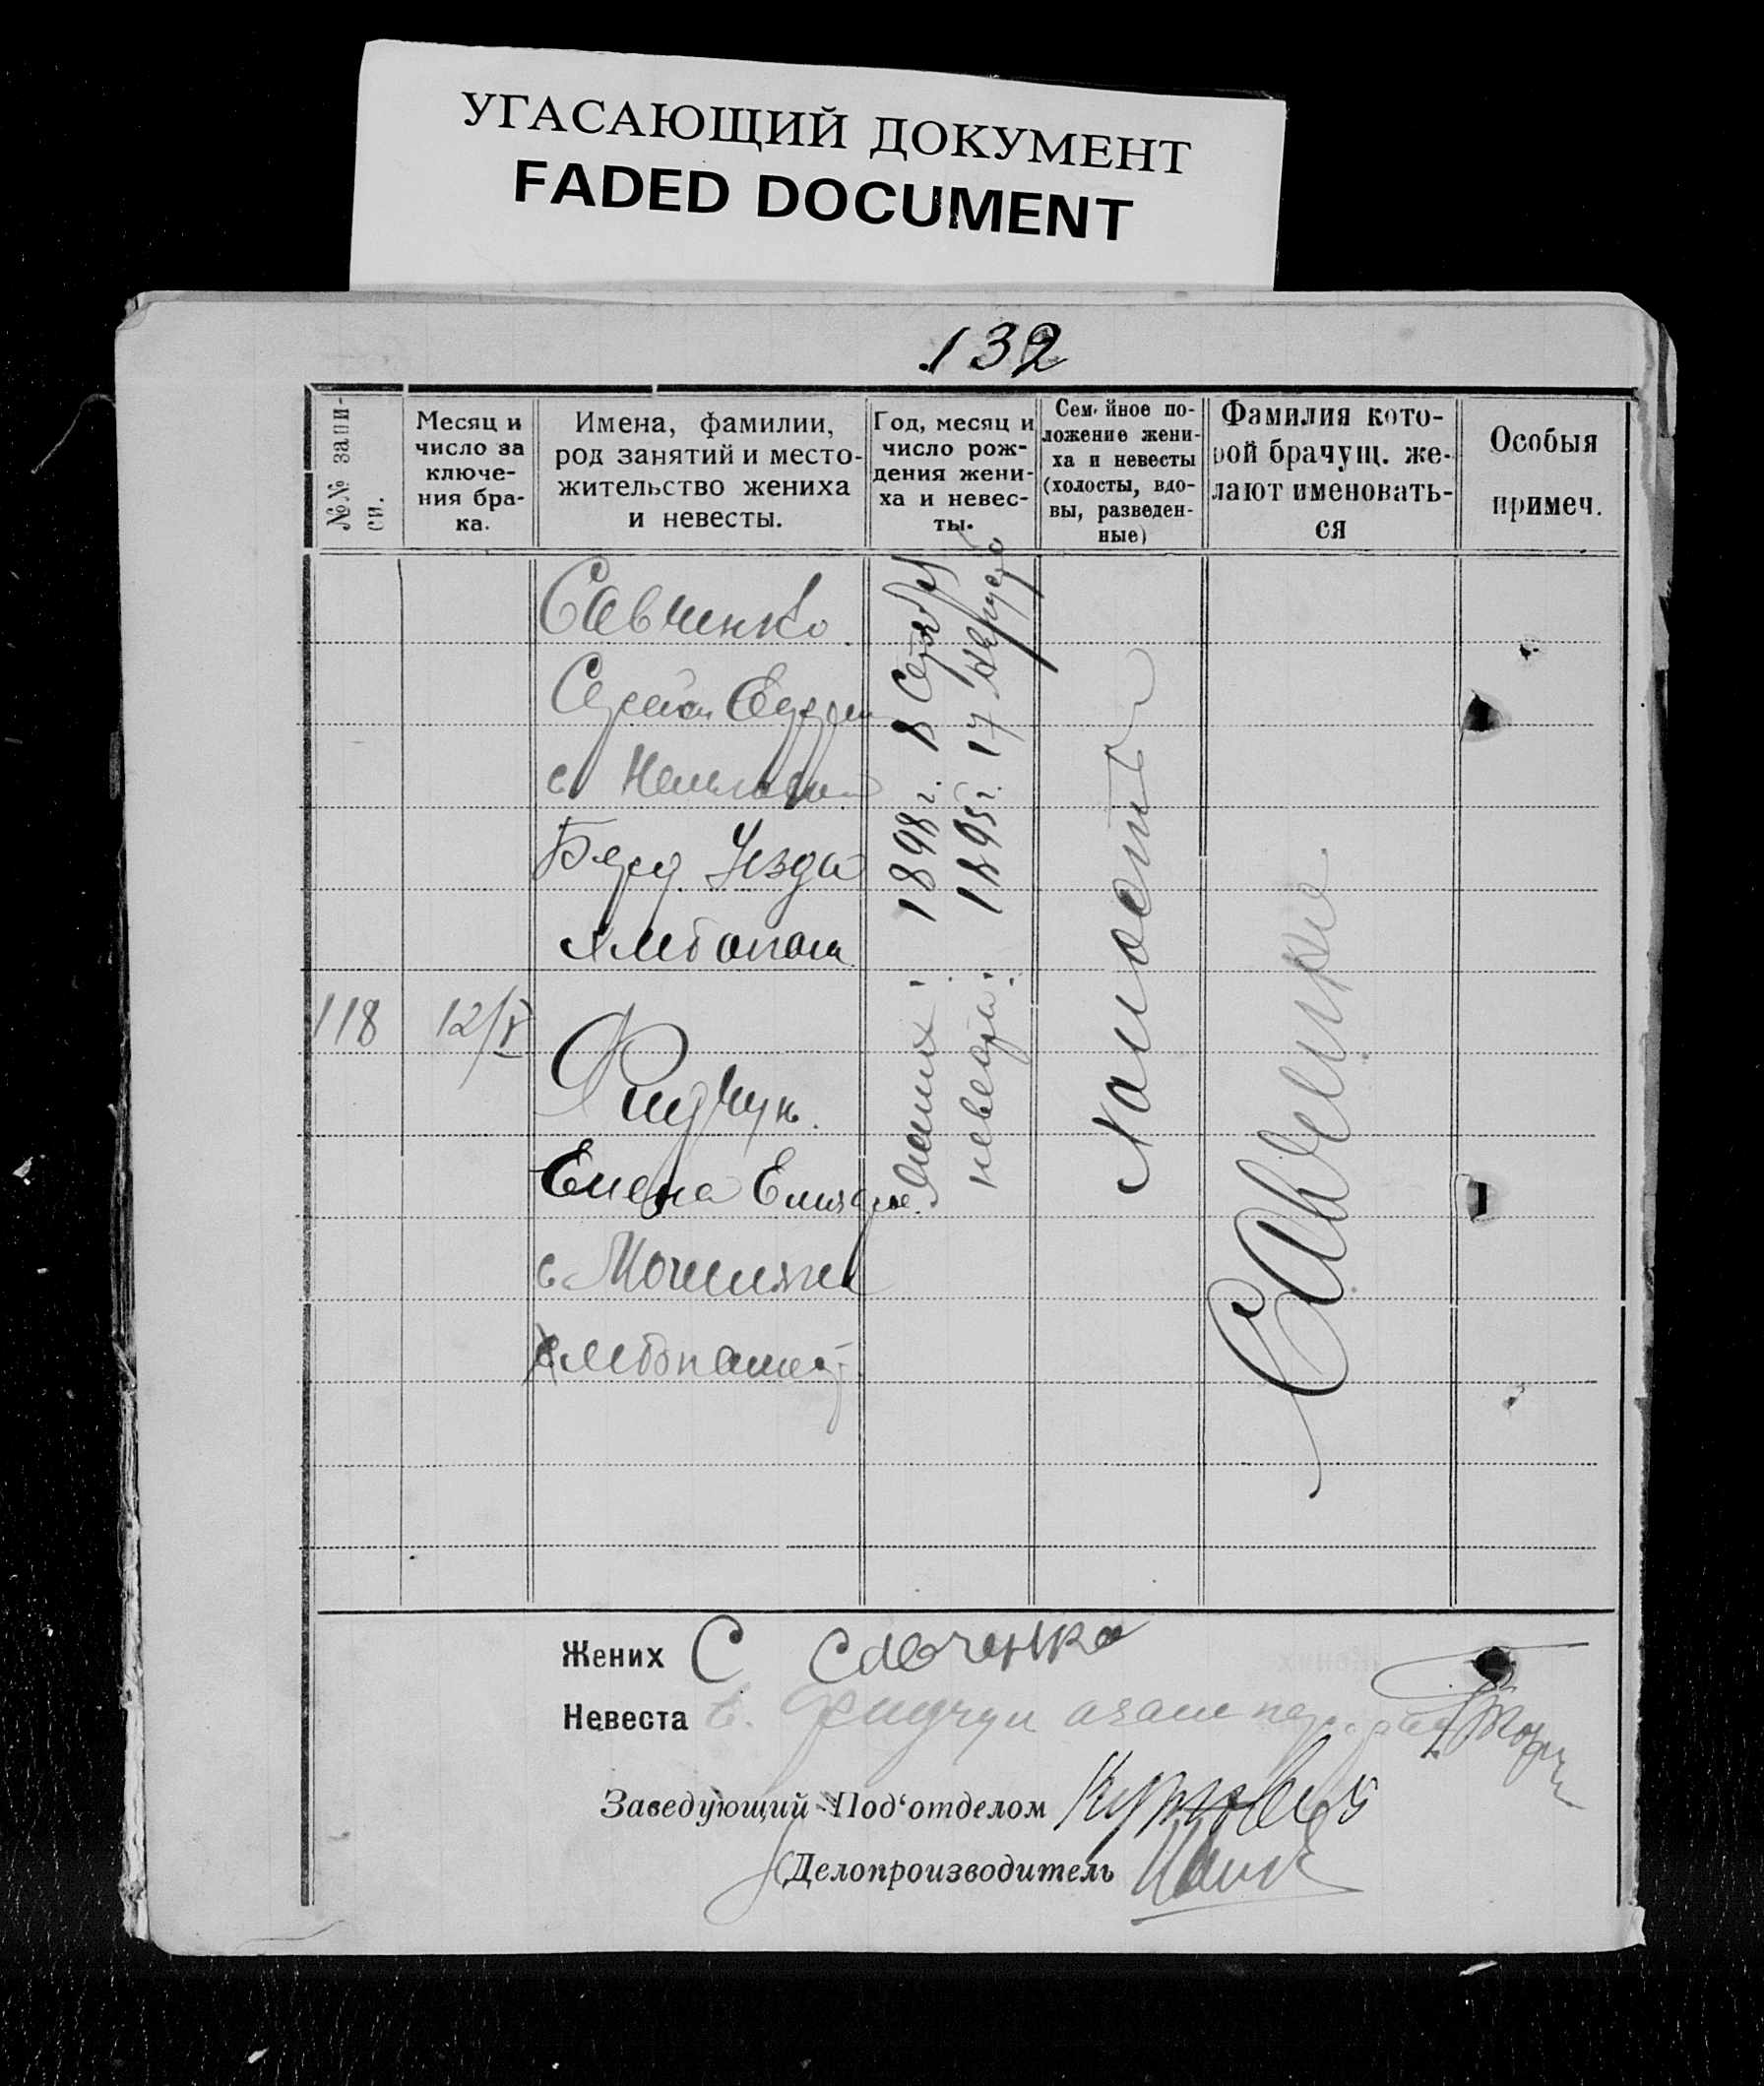 УГАСАЮЩИЙ ДОКУМЕНТ
FADED DOCUMENT
132
№№ запи-
си.
Месяц и
число за
ключе-
ния бра-
ка.
Имена, фамилии,
род занятий и место-
жительство жениха
и невесты.
Год, месяц и
число рож-
дения жени-
ха и невес-
ты.
Семейное по-
ложение жени-
ха и невесты
(холосты, вдо-
вы, разведен-
ные)
Фамилия кото-
рой брачущ. же-
лают именовать-
ся
Особыя
примеч.
118
12/V
Савченко
Сергей
с
Берд. Уезда
Хлебопаш.
Фидчун.
Елена
с.
Хлебопашец
жених: 1898 г. 8
невеста: 1895 г. 17
Холосты
Савченко
Жених С Савченко
Невеста Е. Фидчун
Заведующий Под‘отделом
Делопроизводитель